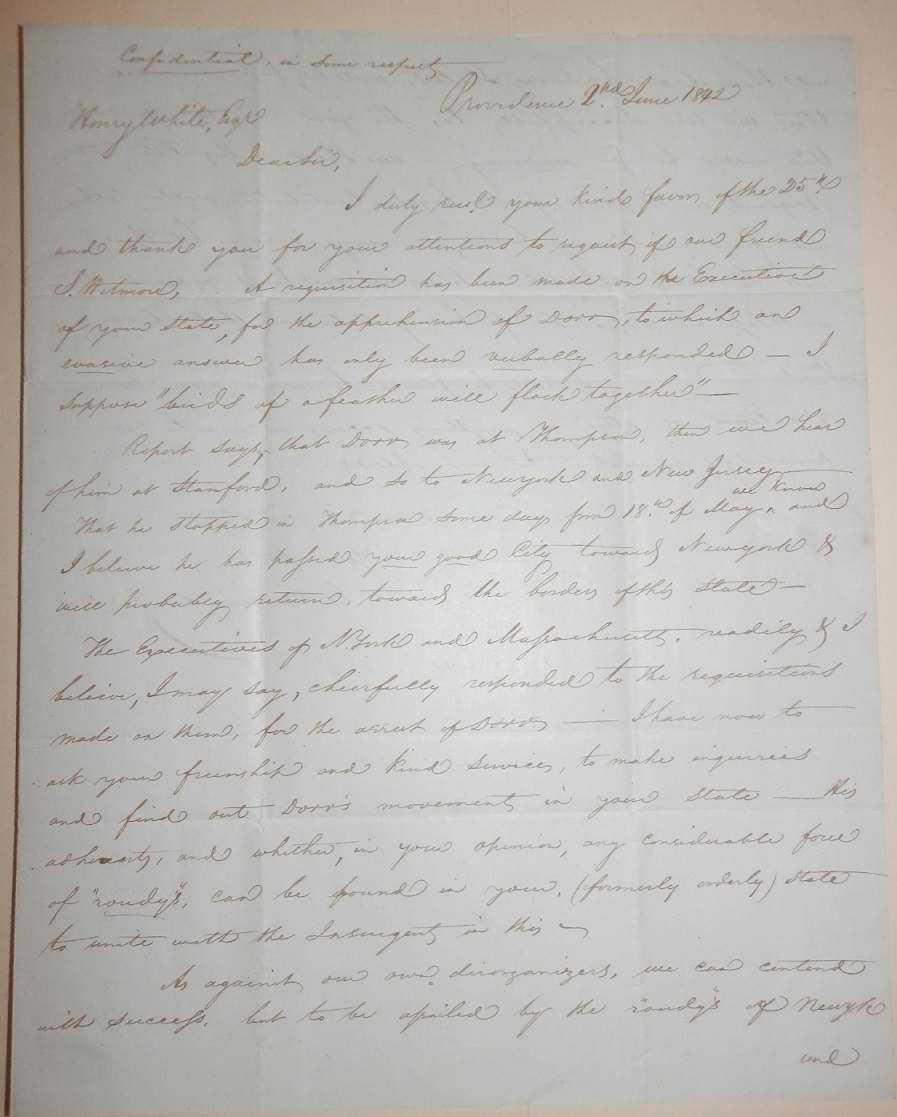 Confidential, in some respects
Providence 2nd June 1842
Henry White, Esqr
Dear Sir,
I duly recd. your kind favor of the 25th.
and thank you for your attentions to request of our friend
S. Wetmore, A requisition has been made on the Executive
of your State, for the apprehension of Dorr, to which an
evasive answer has only been verbally responded — I
suppose "birds of a feather will flock together" —
Report says, that Dorr was at Thompson, then we hear
of him at Stamford, and so to Newyork and New Jersey
we know
That he stopped in Thompson some days from 18th. of May, and
I believe he has passed your good City towards Newyork &
will probably return towards the borders of this State —
The Executives of N. York and Massachusetts, readily & I
believe, I may say, cheerfully responded to the requisitions
made on them, for the arrest of Dorr — I have now to
ask your friendship and kind services, to make inquiries
and find out Dorr's movements in your State — His
adherents, and whether, in your opinion, any considerable force
of "rowdy's, can be found in your (formerly orderly) State
to unite with the Insurgents in this —
As against our own disorganizers, we can contend
with success, but to be assailed by the "rowdy's of Newyk
and